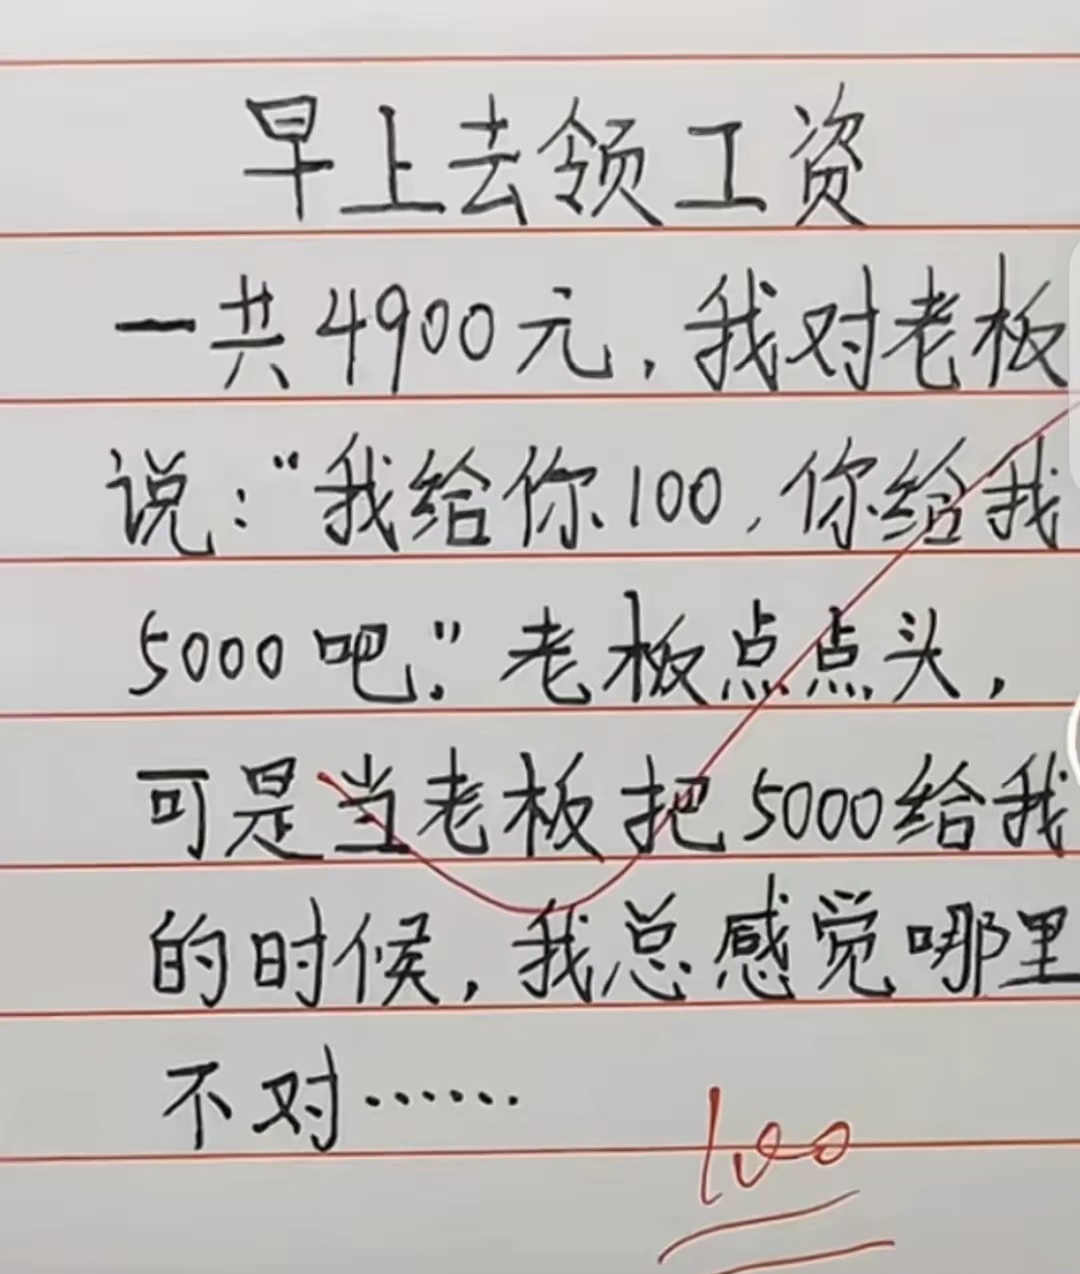 早上去领工资
一共4900元，我对老板
说："我给你100，你给我
5000吧。"老板点点头，
可是当老板把5000给我
的时候，我总感觉哪里
不对……
100